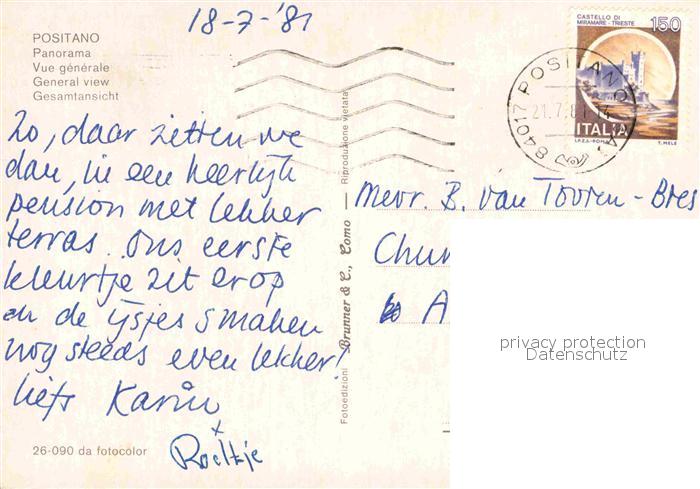 18-7-'81
POSITANO
Panorama
Vue générale
General view
Gesamtansicht
Zo, daar zitten we
dan, in een heerlijk
pension met lekker
terras. Ons eerste
kleurtje zit erop
en de ijsjes smaken
nog steeds even lekker!
liefs Karin
x
Roeltje
26-090 da fotocolor
Fotoedizioni Brunner & C., Como — Riproduzione vietata
CASTELLO DI
MIRAMARE - TRIESTE
150
ITALIA
I.P.Z.S.-ROMA
T. MELE
84017 POSITANO
21.7.81
Mevr. B. van Tooren - Bres
Chur
A
privacy protection
Datenschutz